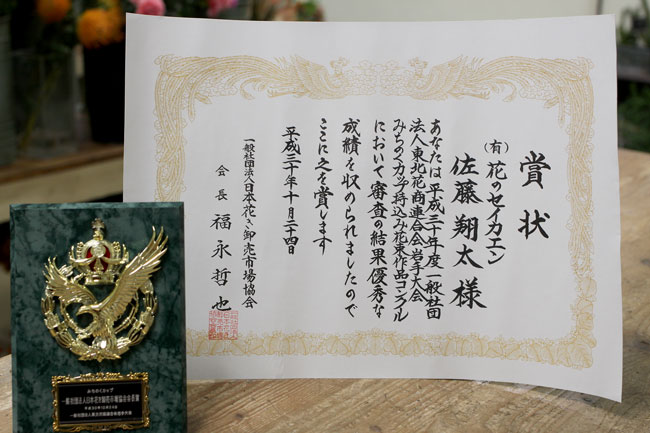 賞状
(有)花のセイカエン
佐藤翔太様
あなたは平成三十年度一般社団
法人東北花商連合会岩手大会
みちのくカップ持込み花束作品コンクール
において審査の結果優秀な
成績を収められましたので
ここに之を賞します
平成三十年十月二十四日
一般社団法人日本花き卸売市場協会
会長 福永哲也
みちのくカップ
一般社団法人日本花き卸売市場協会会長賞
平成30年10月24日